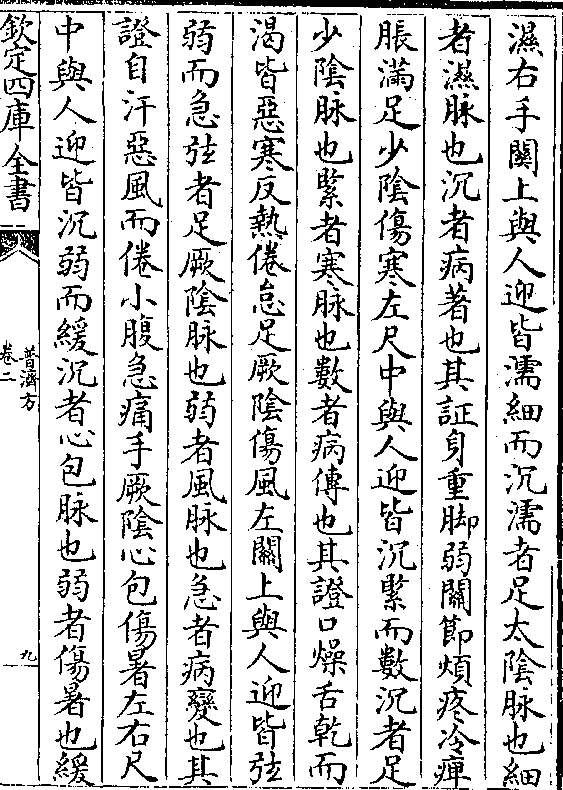 濕右手關上與人迎皆濡細而沉濡者足太陰脉也細
者濕脉也沉者病著也其証身重脚弱關節煩疼冷痺
脹滿足少陰傷寒左尺中與人迎皆沉緊而數沉者足
少陰脉也緊者寒脉也數者病傳也其證口燥舌乾而
渴皆惡寒反熱倦怠足厥陰傷風左關上與人迎皆弦
弱而急弦者足厥陰脉也弱者風脉也急者病變也其
證自汗惡風而倦小腹急痛手厥陰心包傷暑左右尺
中與人迎皆沉弱而緩沉者心包脉也弱者傷暑也緩
欽定四庫全書
普濟方
卷二
九